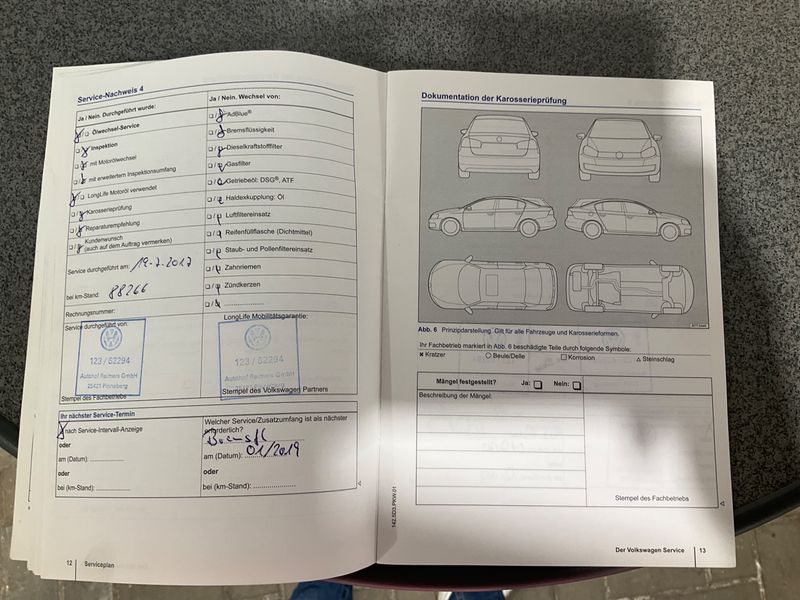 Service-Nachweis 4
Ja / Nein. Durchgeführt wurde:
Ölwechsel-Service
Inspektion
mit Motorölwechsel
mit erweitertem Inspektionsumfang
LongLife Motoröl verwendet
Karosserieprüfung
Reparaturempfehlung
Kundenwunsch
(auch auf dem Auftrag vermerken)
Service durchgeführt am: 19.7.2017
bei km-Stand: 88266
Rechnungsnummer:
Service durchgeführt von:
123 / 62294
Autohof Reimers GmbH
25421 Pinneberg
Stempel des Fachbetriebs
Ja / Nein. Wechsel von:
AdBlue®
Bremsflüssigkeit
Dieselkraftstofffilter
Gasfilter
Getriebeöl: DSG®, ATF
Haldexkupplung: Öl
Luftfiltereinsatz
Reifenfüllflasche (Dichtmittel)
Staub- und Pollenfiltereinsatz
Zahnriemen
Zündkerzen
LongLife Mobilitätsgarantie:
123 / 62294
Autohof Reimers GmbH
25421 Pinneberg
Stempel des Volkswagen Partners
Ihr nächster Service-Termin
nach Service-Intervall-Anzeige
oder
am (Datum):
oder
bei (km-Stand):
Welcher Service/Zusatzumfang ist als nächster
erforderlich?
am (Datum): 01/2019
oder
bei (km-Stand):
12 Serviceplan
Dokumentation der Karosserieprüfung
Abb. 6 Prinzipdarstellung. Gilt für alle Fahrzeuge und Karosserieformen.
Ihr Fachbetrieb markiert in Abb. 6 beschädigte Teile durch folgende Symbole:
x Kratzer ○ Beule/Delle □ Korrosion △ Steinschlag
Mängel festgestellt? Ja: Nein:
Beschreibung der Mängel:
Stempel des Fachbetriebs
142.5D3.PKW.01
Der Volkswagen Service 13